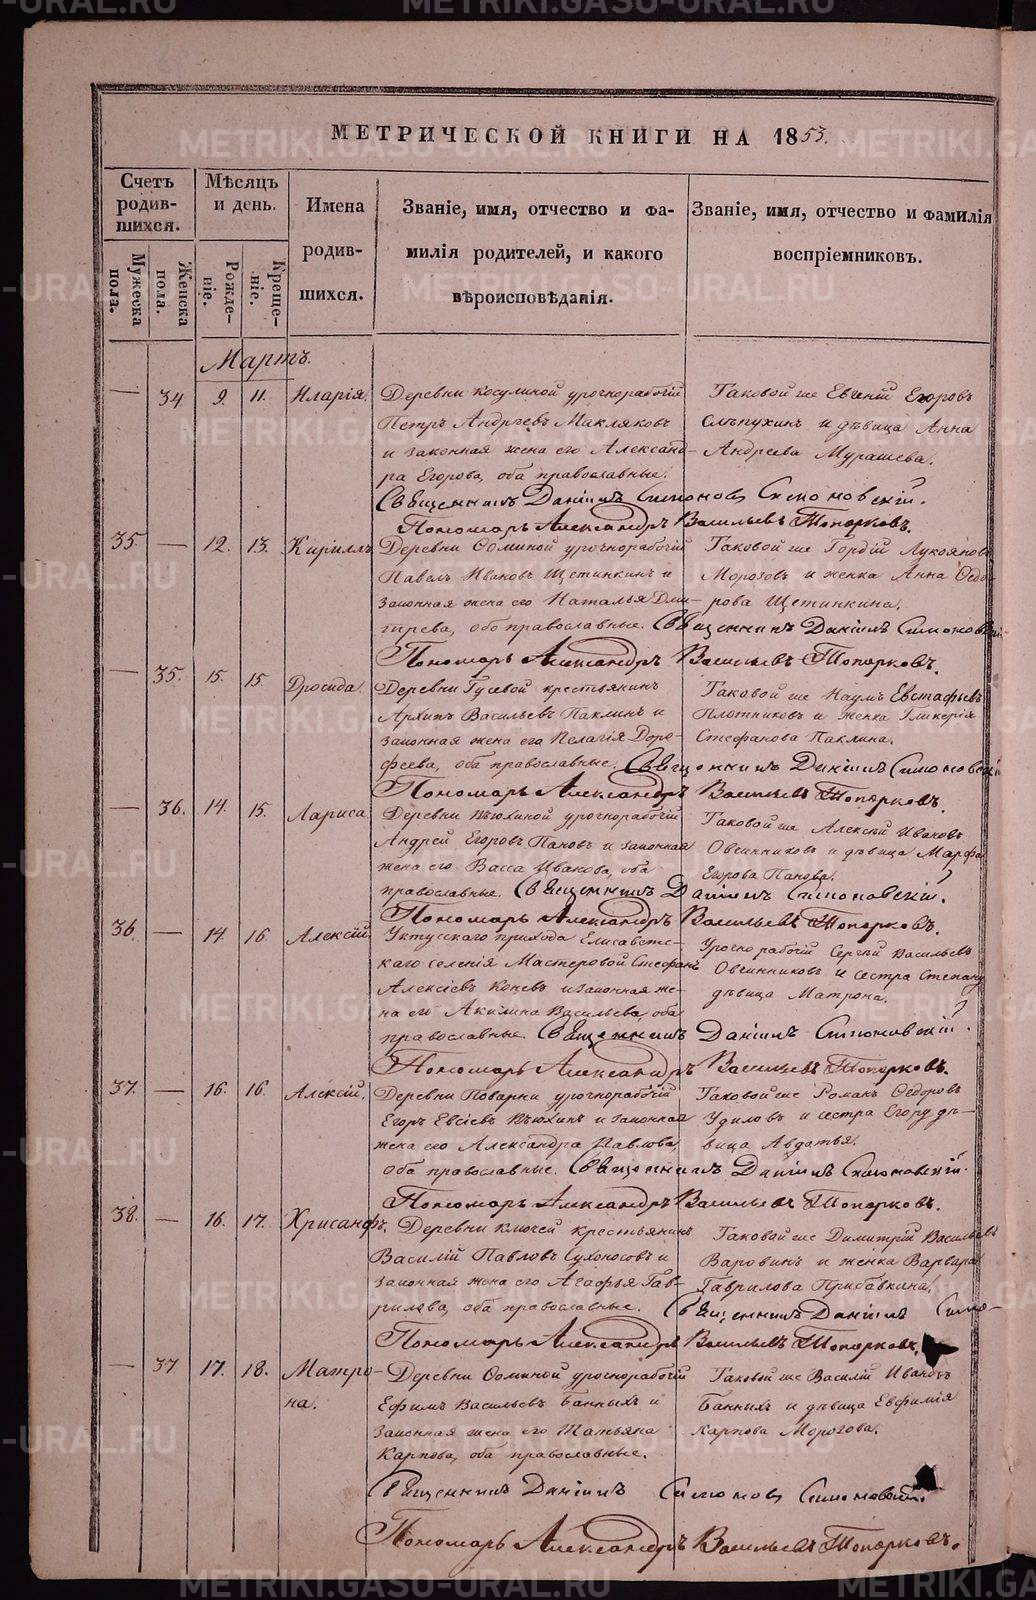 МЕТРИЧЕСКОЙ КНИГИ НА 1853.
Счетъ родив-шихся.
Мужеска пола.
Женска пола.
Мѣсяцъ и день.
Рожде-ніе.
Креще-ніе.
Имена родив-шихся.
Званіе, имя, отчество и фа-
милія родителей, и какого
вѣроисповѣданія.
Званіе, имя, отчество и фамилія
воспріемниковъ.
Мартъ.
— 34 9. 11. Иларія. Деревни Косулиной урочнорабочій Таковой же Евгеній Егоровъ
Петръ Андреевъ Макляковъ Слѣпухинъ и дѣвица Анна
и законная жена его Александ- Андреева Мурашева.
ра Егорова, оба православные.
Священникъ Даніилъ Симоновъ Симоновскій.
Пономарь Александръ Васильевъ Топорковъ.
35 — 12. 13. Кириллъ Деревни Фоминой урочнорабочій Таковой же Гордій Лукояновъ
Павелъ Ивановъ Щетинкинъ и Морозовъ и женка Анна Ѳедо-
законная жена его Наталья Дми- рова Щетинкина.
трева, оба православные. Священникъ Даніилъ Симоновскій
Пономарь Александръ Васильевъ Топорковъ.
— 35. 15. 15. Дросида. Деревни Гусевой крестьянинъ Таковой же Наумъ Евстафьевъ
Архипъ Васильевъ Паклинъ и Плотниковъ и женка Гликерія
законная жена его Пелагія Доро- Стефанова Паклина.
феева, оба православные. Священникъ Даніилъ Симоновскій
Пономарь Александръ Васильевъ Топорковъ.
— 36. 14. 15. Лариса. Деревни Вьюхиной урочнорабочій Таковой же Алексѣй Ивановъ
Андрей Егоровъ Пановъ и законная Овчинниковъ и дѣвица Марфа
жена его Васса Иванова, оба Егорова Панова.
православные. Священникъ Даніилъ Симоновскій.
Пономарь Александръ Васильевъ Топорковъ.
36. — 14. 16. Алексій. Уктусскаго прихода Елисаветс- Урочнорабочій Сергѣй Васильевъ
каго селенія Мастеровой Стефанъ Овчинниковъ и сестра Степану
Алексіевъ Коневъ и законная же- дѣвица Матрона.
на его Акилина Васильева, оба
православные. Священникъ Даніилъ Симоновскій.
Пономарь Александръ Васильевъ Топорковъ.
37. — 16. 16. Алексій. Деревни Поварни урочнорабочій Таковой же Романъ Ѳедоровъ
Егоръ Евсіевъ Вьюхинъ и законная Удиловъ и сестра Егору дѣ-
жена его Александра Павлова, вица Авдотья.
оба православные. Священникъ Даніилъ Симоновскій.
Пономарь Александръ Васильевъ Топорковъ.
38. — 16. 17. Хрисанфъ. Деревни Ключей крестьянинъ Таковой же Димитрій Васильевъ
Василій Павловъ Сухоносовъ и Варовинъ и женка Варвара
законная жена его Агафья Гав- Гаврилова Прибавкина.
рилова, оба православные. Священникъ Даніилъ Симо-
Пономарь Александръ Васильевъ Топорковъ.
— 37 17. 18. Матро- Деревни Фоминой урочнорабочій Таковой же Василій Ивановъ
на. Ефимъ Васильевъ Банныхъ и Банныхъ и дѣвица Евфимія
законная жена его Татьяна Карпова Морозова.
Карпова, оба православные.
Священникъ Даніилъ Симоновъ Симоновскій.
Пономарь Александръ Васильевъ Топорковъ.
METRIKI.GASO-URAL.RU